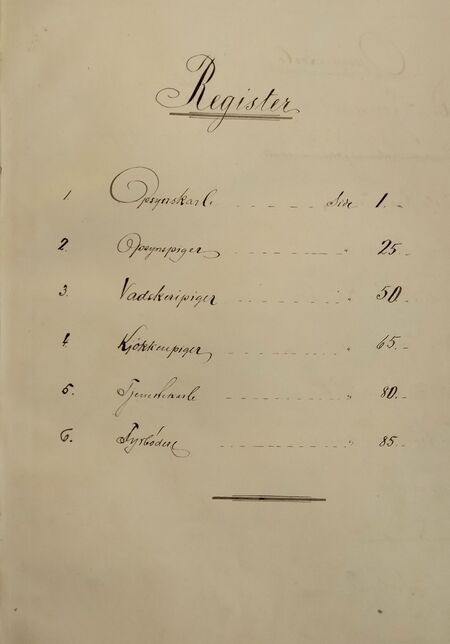 Register
1. Opsynskarle - - - - - Side 1. -
2. Opsynspiger - - - - - " 25. -
3. Vadskeripiger - - - - - " 50 -
4. Kjøkkenpiger - - - - - " 65. -
5. Tjenestekarle - - - - - " 80. -
6. Fyrbødere - - - - - " 85. -